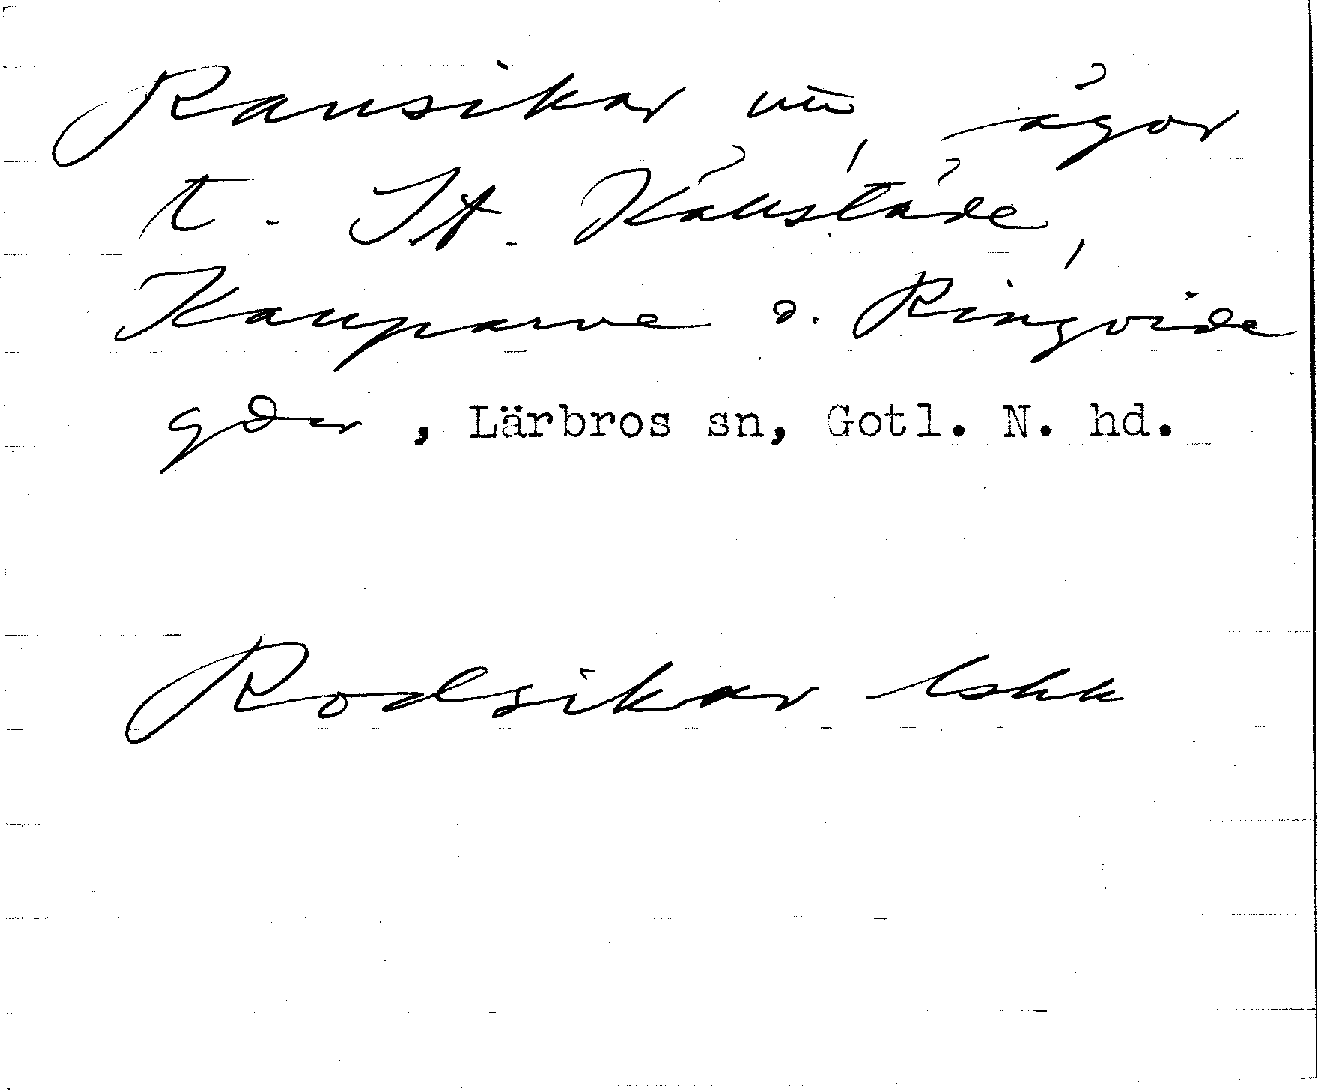 Rausikar vñ, ägor
t. St. Källstäde,
Kauparve o. Ringvide
gdar, Lärbros sn, Gotl. N. hd.
Rodsikar lskk